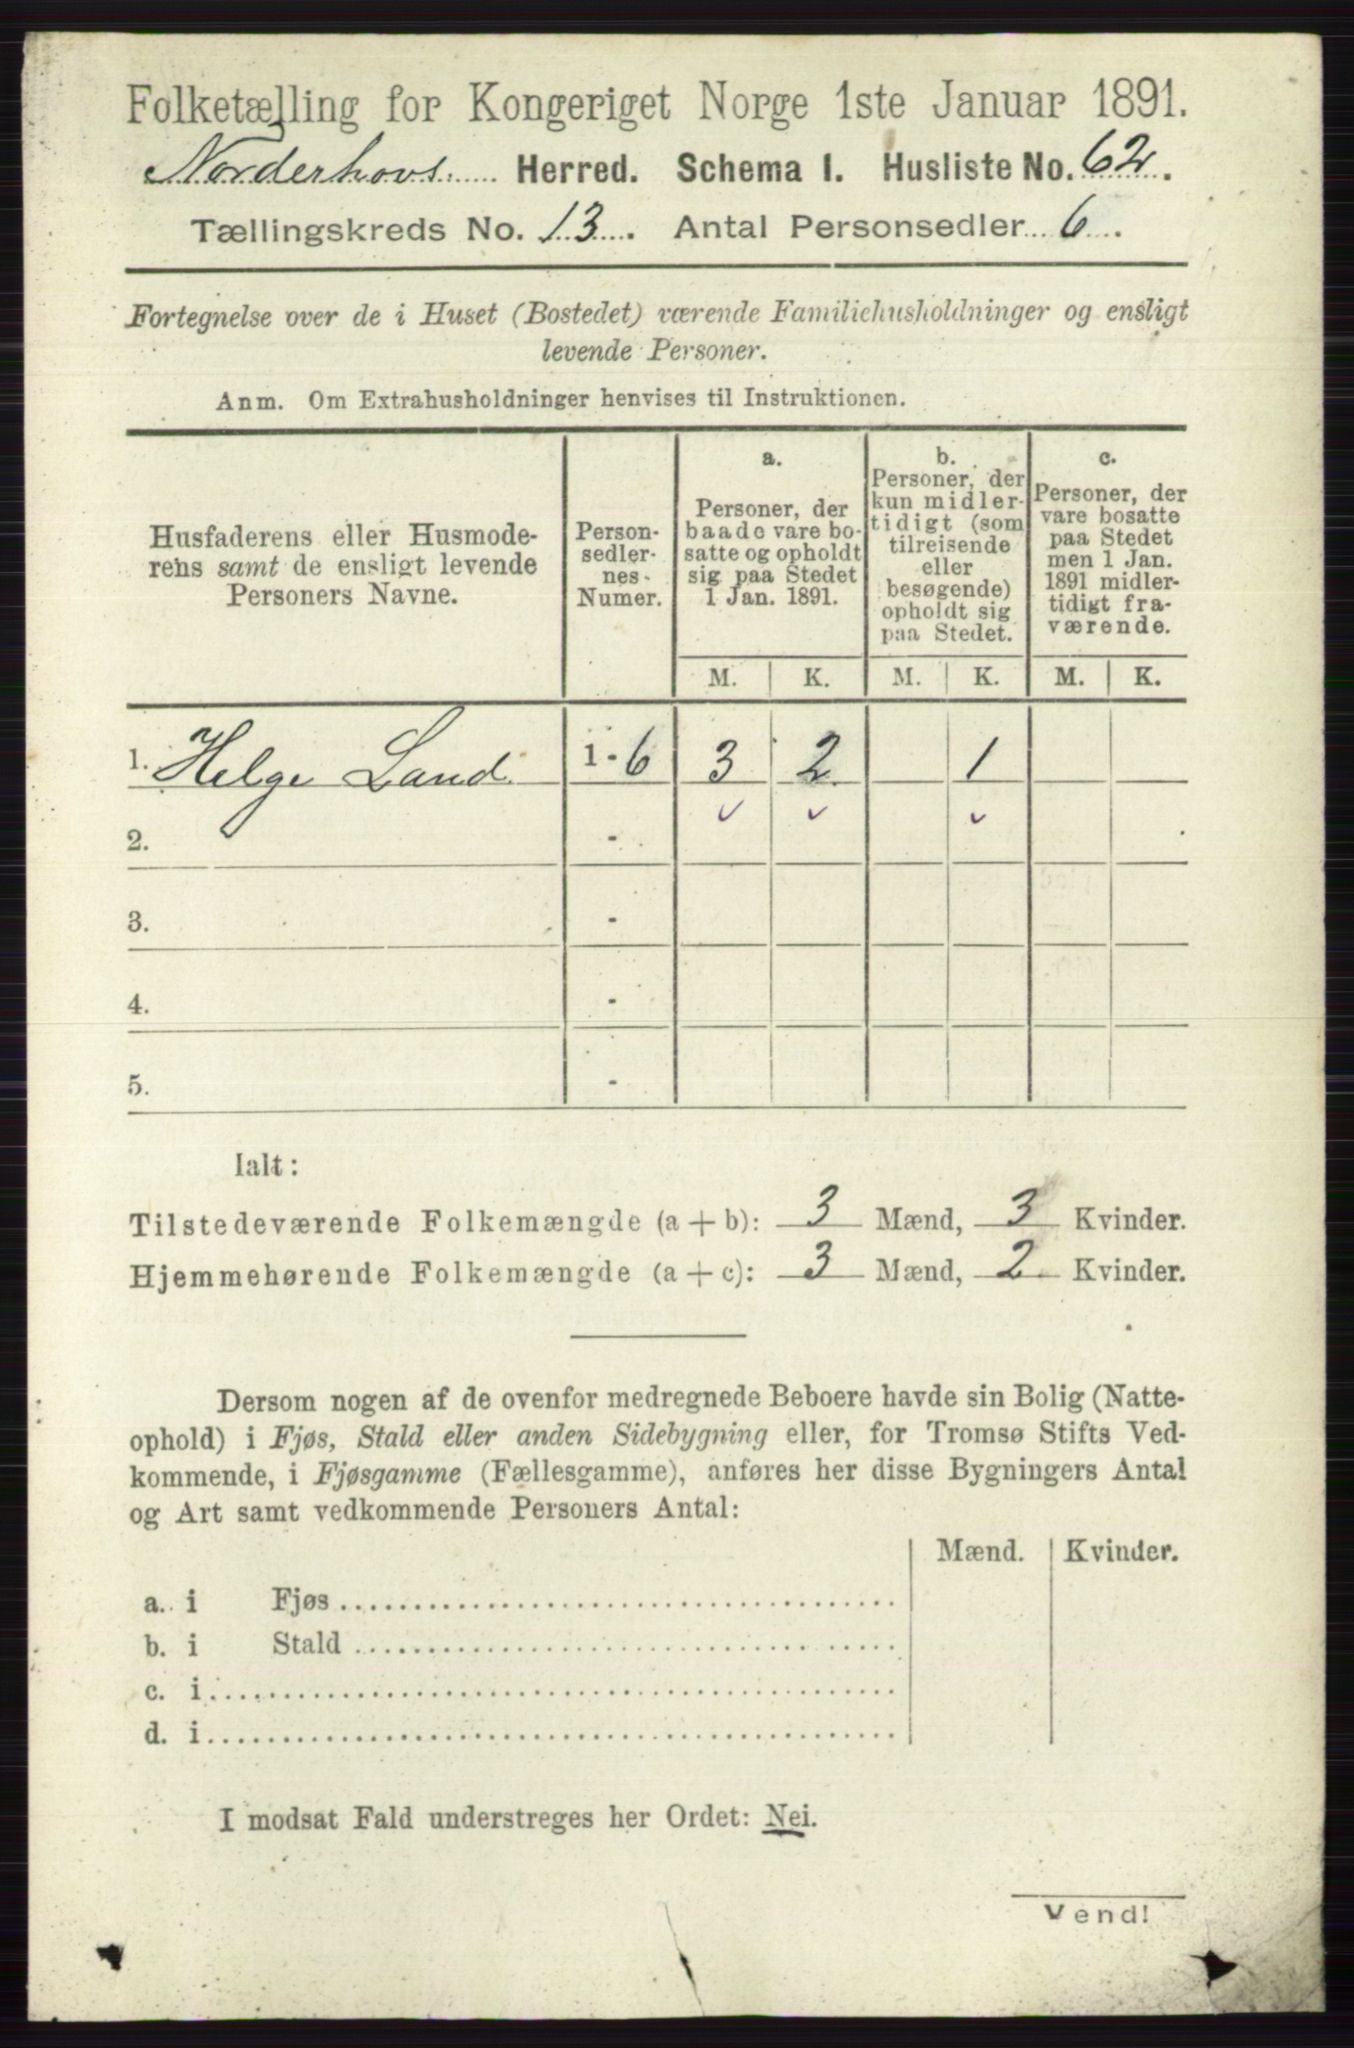 Folketælling for Kongeriget Norge 1ste Januar 1891.
Norderhovs Herred. Schema I. Husliste No. 62.
Tællingskreds No. 13. Antal Personsedler 6.
Fortegnelse over de i Huset (Bostedet) værende Familiehusholdninger og ensligt
levende Personer.
Anm. Om Extrahusholdninger henvises til Instruktionen.
Husfaderens eller Husmode-
rens samt de ensligt levende
Personers Navne.
Person-
sedler-
nes-
Numer.
a.
Personer, der
baade vare bo-
satte og opholdt
sig paa Stedet
1 Jan. 1891.
b.
Personer, der
kun midler-
tidigt (som
tilreisende
eller
besøgende)
opholdt sig
paa Stedet.
c.
Personer, der
vare bosatte
paa Stedet
men 1 Jan.
1891 midler-
tidigt fra-
værende.
M. K. M. K. M. K.
1. Helge Land 1-6 3 2 1
2. -
3. -
4. -
5. -
Ialt:
Tilstedeværende Folkemængde (a + b): 3 Mænd, 3 Kvinder.
Hjemmehørende Folkemængde (a + c): 3 Mænd, 2 Kvinder.
Dersom nogen af de ovenfor medregnede Beboere havde sin Bolig (Natte-
ophold) i Fjøs, Stald eller anden Sidebygning eller, for Tromsø Stifts Ved-
kommende, i Fjøsgamme (Fællesgamme), anføres her disse Bygningers Antal
og Art samt vedkommende Personers Antal:
Mænd. Kvinder.
a. i Fjøs
b. i Stald
c. i
d. i
I modsat Fald understreges her Ordet: Nei.
Vend!